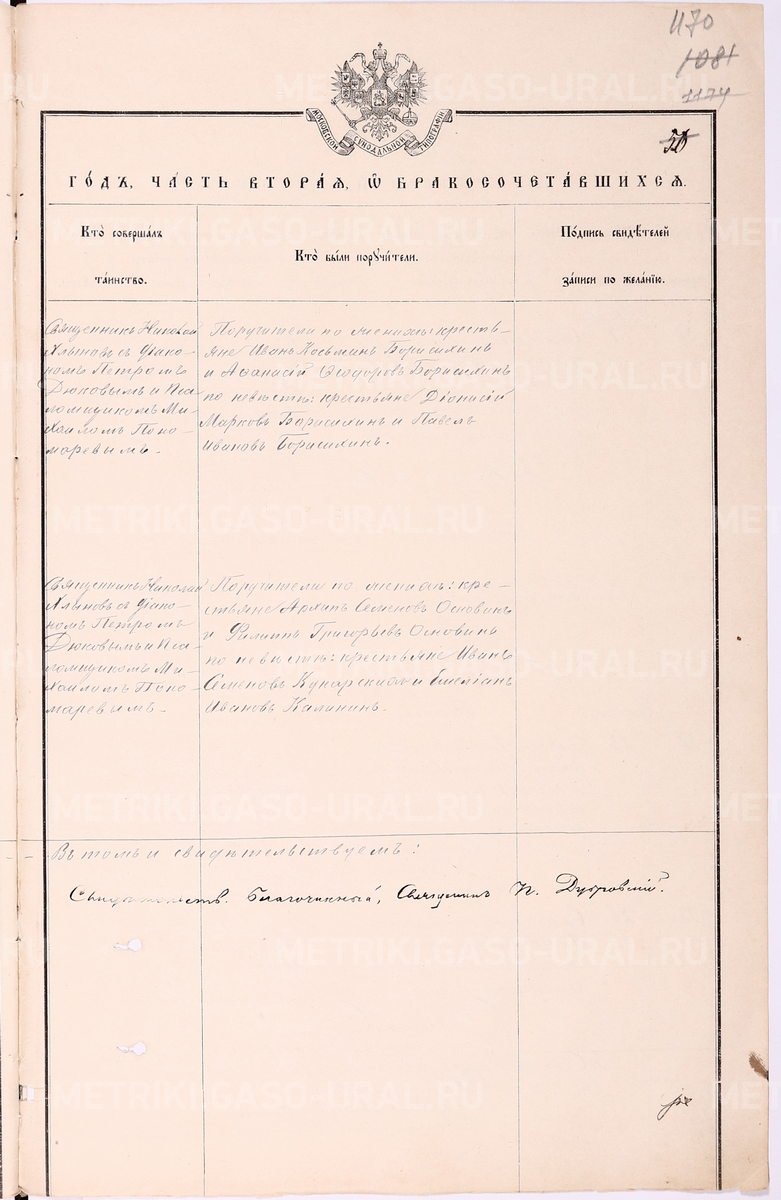 1170
1081
1174
МОСКОВСКОЙ СѴНОДАЛЬНОЙ ТИПОГРАФІИ
50
ГО́ДЪ, ЧА́СТЬ ВТОРА́Я, Ѽ БРАКОСОЧЕТА́ВШИХСЯ.
Кто̀ соверша́лъ
та́инство.
Кто̀ бы́ли порꙋчи́тели.
По́дпись свидѣ́телей
за́писи по жела́нїю.
Священникъ Николай
Хлыновъ съ діако-
номъ Петромъ
Дюковымъ и пса-
ломщикомъ Ми-
хаиломъ Поно-
маревымъ.
Поручители по женихѣ: кресть-
яне Иванъ Косьминъ Борисихинъ
и Аѳанасій Ѳеодоровъ Борисихинъ
по невѣстѣ: крестьяне Діонисій
Марковъ Борисихинъ и Павелъ
Ивановъ Борисихинъ.
Священникъ Николай
Хлыновъ съ діако-
номъ Петромъ
Дюковымъ и пса-
ломщикомъ Ми-
хаиломъ Поно-
маревымъ.
Поручители по женихѣ: кре-
стьяне Архипъ Семеновъ Основинъ
и Филиппъ Григорьевъ Основинъ
по невѣстѣ: крестьяне Иванъ
Семеновъ Кунарскихъ и Емеліанъ
Ивановъ Калининъ.
Въ томъ и свидѣтельствуемъ:
Свидѣтельств. Благочинный, Священникъ П. Дубровскій.
METRIKI.GASO-URAL.RU